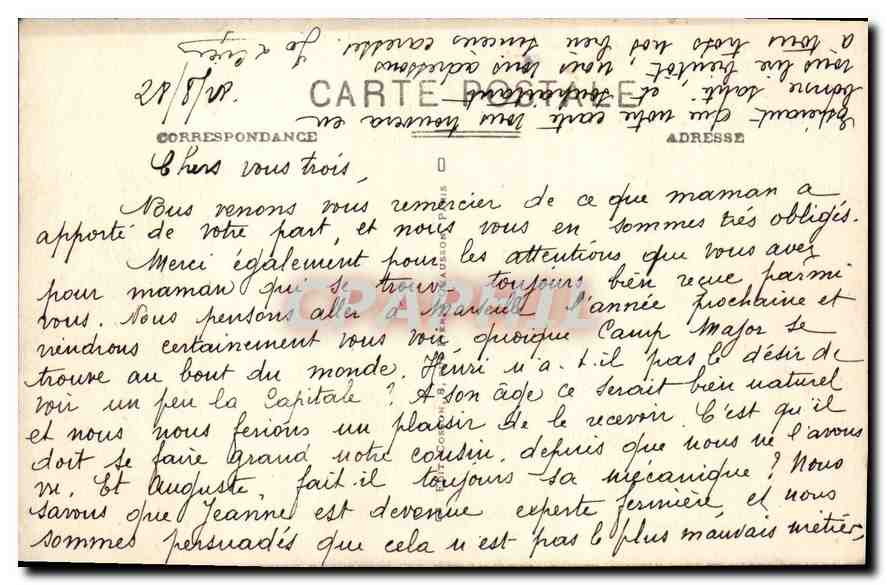 28/8/28.
CARTE POSTALE
CORRESPONDANCE
ADRESSE
Chers vous trois,
Nous venons vous remercier de ce que maman a
apporté de votre part, et nous vous en sommes très obligés.
Merci également pour les attentions que vous avez
pour maman qui se trouve toujours bien reçue parmi
vous. Nous pensons aller à Marseille l'année prochaine et
viendrons certainement vous voir, quoique Camp Major se
trouve au bout du monde. Henri n'a-t-il pas le désir de
voir un peu la Capitale ? A son âge ce serait bien naturel
et nous nous ferions un plaisir de le recevoir. C'est qu'il
doit se faire grand notre cousin, depuis que nous ne l'avons
vu. Et Auguste, fait-il toujours sa mécanique ? Nous
savons que Jeanne est devenue experte fermière, et nous
sommes persuadés que cela n'est pas le plus mauvais métier,
Espérant que notre carte vous trouvera en
bonne santé, et souhaitant
vous lire bientôt, nous vous adressons
à vous trois nos bien sincères caresses.
CPAPHIL